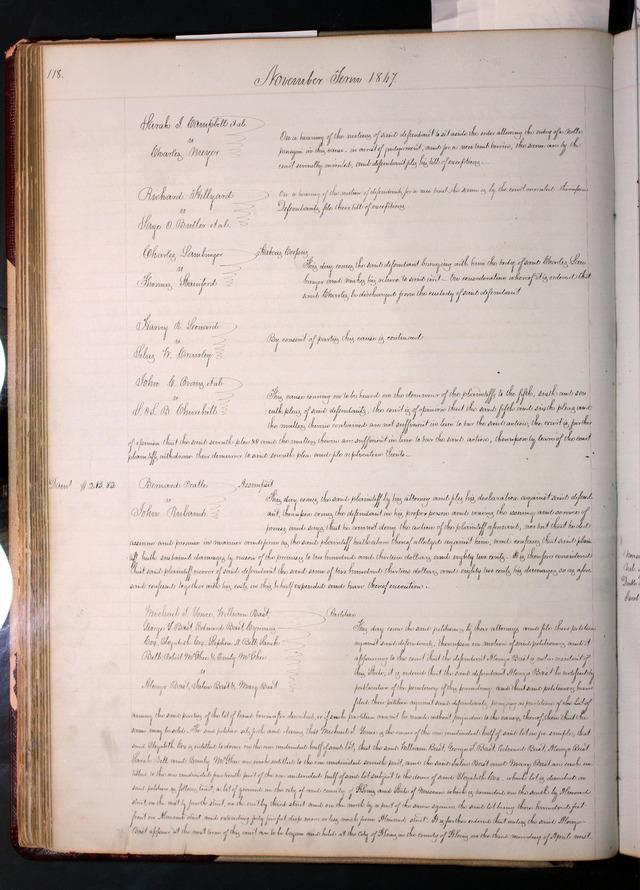 118.
November Term 1847.
Sarah S. Campbell et al.
vs
Charles Mezer
On a hearing of the motions of said defendant to set aside the order allowing the
in this cause in arrest of judgement, and for a new trial herein, the same are by the
court severally overruled, and defendant files his bill of exceptions.
Richard Hillyard
vs
O. Butler et al.
On a hearing of the motion of defendants for a new trial the same is by the court overruled thereupon
Defendants file their bill of exceptions
Charles
vs
Thomas Stanford
Habeas Corpus
This day comes the said defendant bringing with him the body of said Charles
and makes his return to said writ. On consideration whereof it is ordered that
said Charles be discharged from the custody of said defendant
Harvey A. Leonard
vs
Silas W. Crawley
By consent of parties this cause is continued
John C. Evans et al
vs
S. & S. B. Churchill
This cause coming on to be heard on the demurrer of the plaintiffs to the fifth, sixth and sev-
enth pleas of said defendants, the court is of opinion that the said fifth and sixth pleas and
the matters therein contained are not sufficient in law to bar the said action, the court is further
of opinion that the said seventh plea & and the matters therein are sufficient in law to bar the said action, thereupon by leave of the court
plaintiffs withdraw their demurrer to said seventh plea and file replication thereto.
Dam $213.82
Bernard Pratte
vs
John
Assumpsit
This day comes the said plaintiff by his attorney and files his declaration against said defend-
ant, thereupon comes the defendant in his proper person and waving the issuing and service of
process and says that he cannot deny the action of the plaintiff aforesaid, nor but that he did
assume and promise in manner and form as the said plaintiff hath above thereof alleged against him, and confesses that said plain-
tiff hath sustained damages by reason of the premises to two hundred and thirteen dollars and eighty two cents. It is therefore considered
that said plaintiff recover of said defendant the said sum of two hundred thirteen dollars and eighty two cents his damages so as afore-
said confessed together with his costs in this behalf expended and have thereof execution.
Michael S. Cerre, William Baist,
George S. Baist, Edmund Baist,
Cox, Elizabeth Cox, Stephen D. Bell, Sarah
Bell, Robert McGhee & Emily McGhee
vs
Alonzo Baist, Salina Baist & Mary Baist
Partition
This day come the said petitioners by their attorney and file their petition
against said defendants, thereupon on motion of said petitioners, and it
appearing to the court that the defendant Alonzo Baist is not a resident of
this State, it is ordered that the said defendant Alonzo Baist be notified by
publication of the pendency of this proceeding and that said petitioners have
filed their petition against said defendants, praying a partition of the lot of
among the said parties of the lot of land hereinafter described, or if such partition cannot be made without prejudice to the owners thereof then that the
same may be sold. The said petition sets forth and shews that Michael S. Cerre is the owner of the one undivided half of said lot in fee simple, that
said Elizabeth Cox is entitled to dower in the one undivided half of said lot, that the said William Baist, George S. Baist, Edmund Baist, Alonzo Baist
Sarah Bell and Emily McGhee are each entitled to the one undivided part, and the said Salina Baist and Mary Baist are each en-
titled to the one undivided fourteenth part of the one undivided half of said lot subject to the dower of said Elizabeth Cox, which lot is described in
said petition as follows, to wit, a lot of ground in the city and county of St Louis and State of Missouri which is bounded on the south by Almond
street, on the east by fourth street, on the west by third street and on the north by a part of the same square, the said lot being three hundred feet
front on Almond street and extending fifty four feet deep more or less north from Almond street. It is further ordered that unless the said Alonzo
Baist appear at the next term of this court now to be begun and held at the city of St Louis in the county of St Louis on the third monday of April next